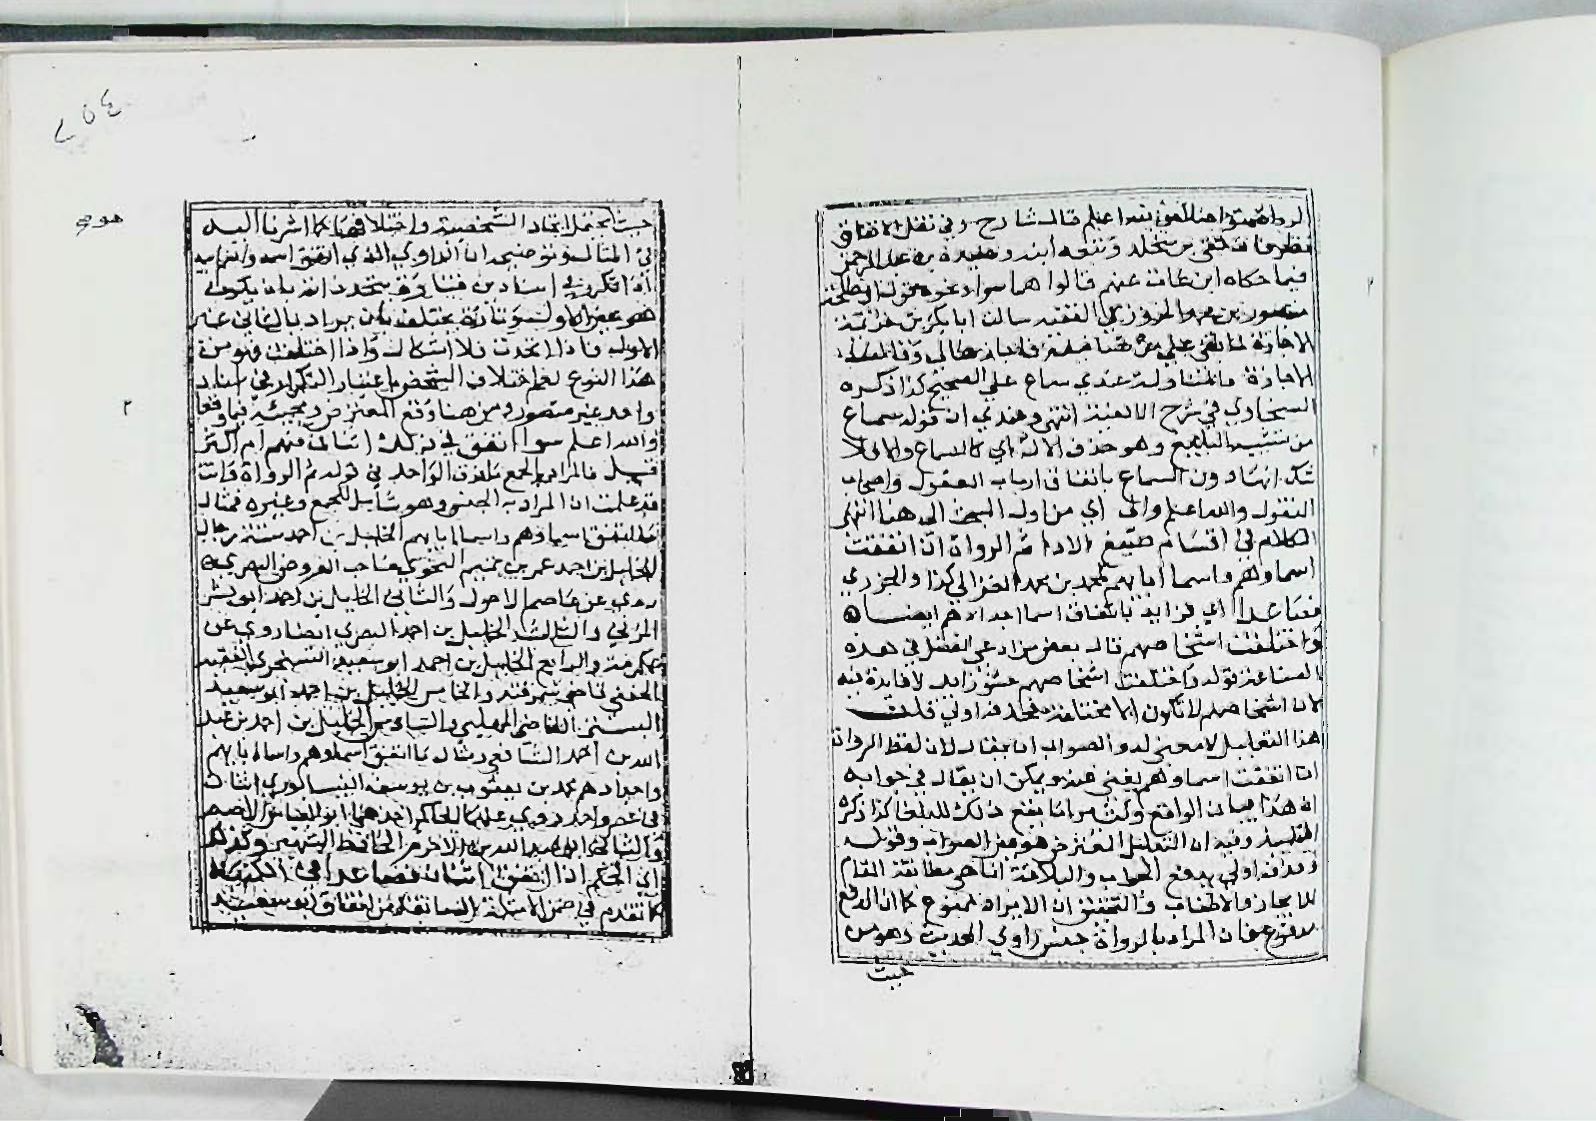 قال شارح وفي نقل الاتفاق
نظر فقد بقي بن مخلد وتبعه ابنه وحفيده عبد الرحمن
فيما حكاه ابن عتاب عنهم قالوا هما سواء
الفقيه سالت ابا بكر بن خزيمة
الاجازة
الاجازة والمناولة عندي سماع على الصحيح كذا ذكره
السخاوي في شرح الالفية انتهى وعندي ان قوله سماع
من تشبيه البليغ وهو حذف الالة اي كالسماع والا فلا
شك انها دون السماع باتفاق ارباب العقول واصحاب
النقول والله اعلم والى اي من اول البحث الى هنا انتهى
الكلام في اقسام صيغ الاداء ثم الرواة ان اتفقت
اسماؤهم واسما ابايهم كمحمد بن محمد الغزالي كذا والجزري
فصاعدا اي فزايد باتفاق اسما اجدادهم ايضا
واختلفت اشخاصهم قال بعض من ادعى الفضل في هذه
الصناعة قوله واختلفت اشخاصهم حشو زايد لا فايدة فيه
لان اشخاصهم لا تكون الا مختلفة فحذفه اولى قلت
هذا التعليل لا معنى له والصواب ان يقال لان لفظ الرواة
ان اتفقت اسماؤهم يغني عنه ويمكن ان يقال في جوابه
ان هذا بيان الواقع وكثيرا ما يقع ذلك للبلغا كذا ذكر
التلميذ وفيه ان التعليل المعترض هو عين الصواب وقوله
وحذفه اولى يدفع الجواب والبلاغة انما هي مطابقة المقام
للايجاز والاطناب والتحقيق ان الايراد ممنوع كما ان الدفع
مدفوع فان المراد بالرواة جنس راوي الحديث وهو من
حيث
حيث يحتمل لاتحاد الشخصية واختلافها كما اشرنا اليه
في المثال وتوضيحه ان الراوي الذي اتفق اسمه واسم ابيه
اذا تكرر في اسنادين فتارة يتحدان بان يكون
هو عين الاول وتارة يختلف بان يراد بالثاني غير
الاول فاذا اتحدت فلا اشكال واذا اختلفت فهو من
هذا النوع نعم اختلاف الشخص باعتبار التكرار في اسناد
واحد غير متصور ومن هنا وقع المعترض
والله اعلم سواء اتفق في ذلك اثنان منهم ام اكثر
قيل فالمراد بالجمع ما فوق الواحد في قوله ثم الرواة وانت
قد علمت ان المراد به الجنس وهو شامل للجمع وغيره فمثال
ما اتفق اسماؤهم واسما ابايهم الخليل بن احمد ستة رجال
الخليل بن احمد بن عمر بن تميم النحوي صاحب العروض البصري
روى عن عاصم الاحول والثاني الخليل بن احمد ابو بشر
المزني والثالث الخليل بن احمد البصري ايضا روى عن
عكرمة والرابع الخليل بن احمد ابو سعيد السجزي الفقيه
الحنفي قاضي سمرقند والخامس الخليل بن احمد ابو سعيد
البستي القاضي المهلبي والسادس الخليل بن احمد بن عبد
الله بن احمد الشافعي ومثال ما اتفق اسماؤهم واسما ابايهم
واجدادهم محمد بن يعقوب بن يوسف النيسابوري اثنان
في عصر واحد روى عنهما الحاكم احدهما ابو العباس الاصم
والثاني ابو عبد الله بن الاخرم الحافظ الشهير وكذلك
اي الحكم اذا اتفق اثنان فصاعدا في الكنية
كما تقدم في ضمن الامثلة
هو ح
٢٥٤
٢